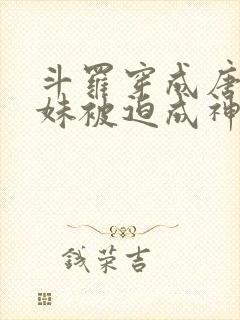 斗罗穿成唐
妹被迫成神
钱荣吉